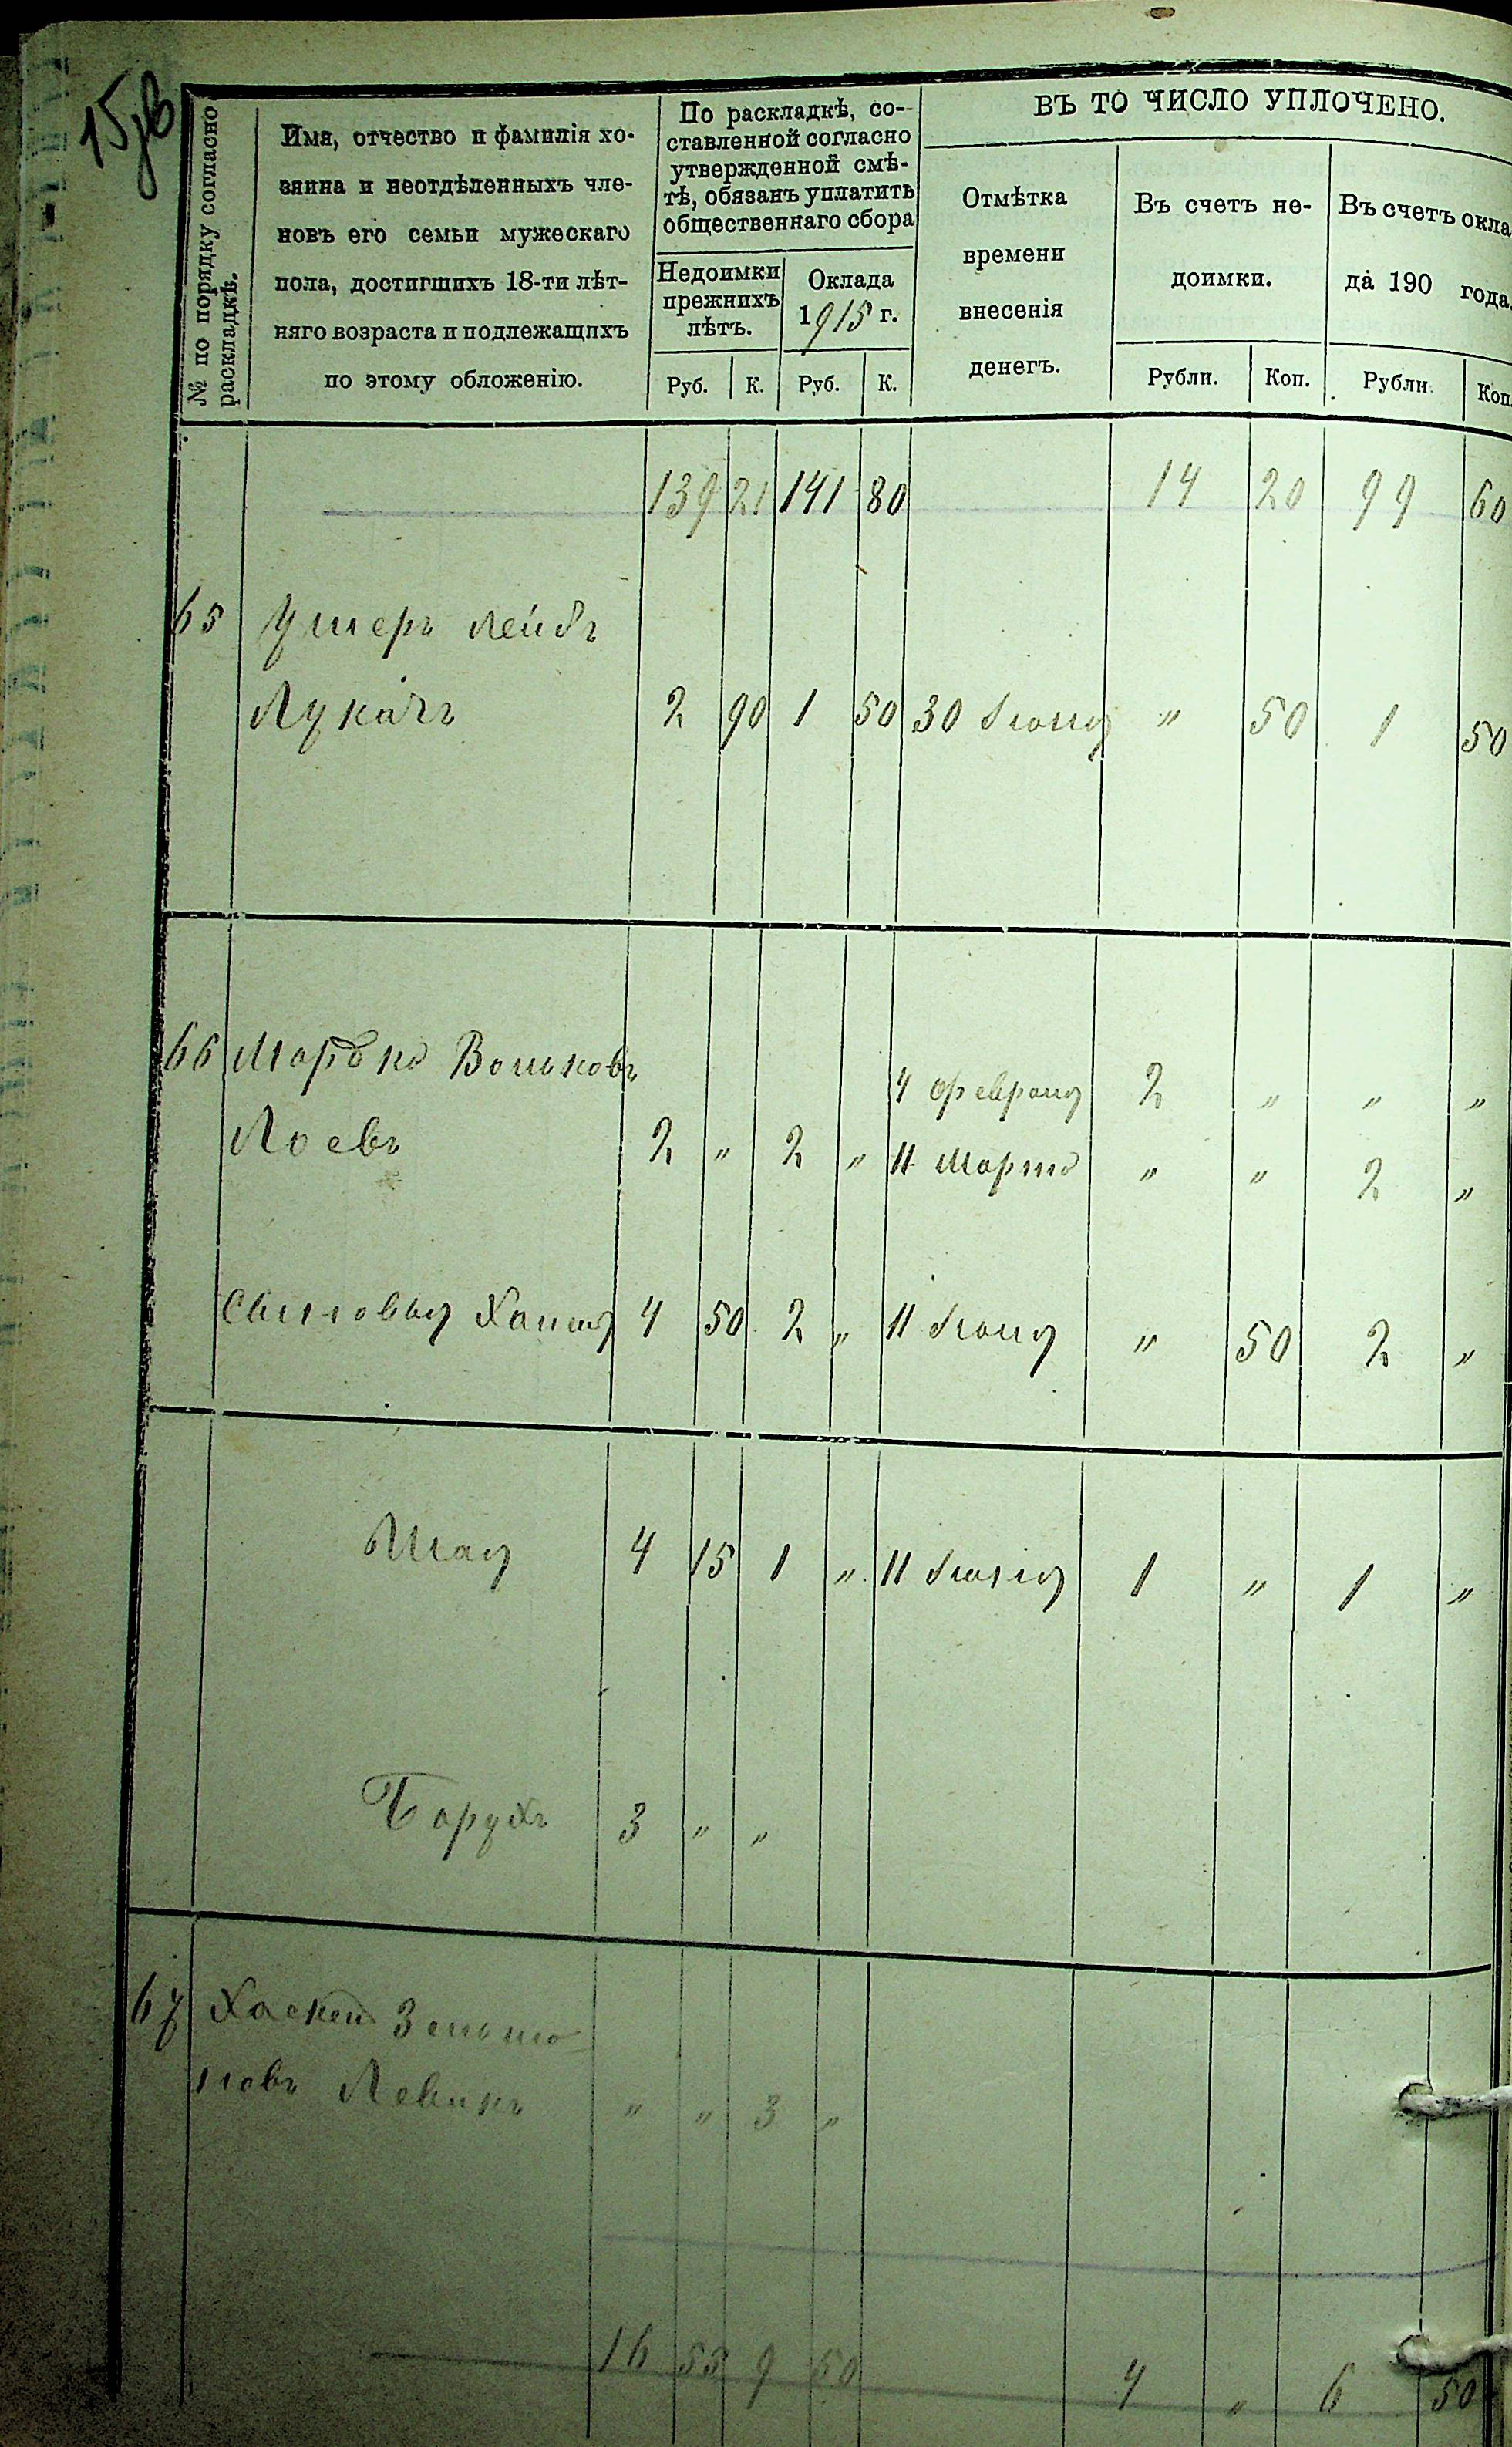 15 об
№ по порядку согласно
раскладкѣ.
Имя, отчество и фамилія хо-
зяина и неотдѣленныхъ чле-
новъ его семьи мужескаго
пола, достигшихъ 18-ти лѣт-
няго возраста и подлежащихъ
по этому обложенію.
По раскладкѣ, со-
ставленной согласно
утвержденной смѣ-
тѣ, обязанъ уплатить
общественнаго сбора
Недоимки
прежнихъ
лѣтъ.
Оклада
1915 г.
Руб. К. Руб. К.
ВЪ ТО ЧИСЛО УПЛОЧЕНО.
Отмѣтка
времени
внесенія
денегъ.
Въ счетъ не-
доимки.
Рубли. Коп.
Въ счетъ окла
да 190 года.
Рубли. Коп.
139 21 141 80 14 20 99 60
65 Ушеръ Лейбъ
2 90 1 50 30 Іюня " 50 1 50
66 Мордко Вольковъ
4 Февраля 2 " " "
Лоевъ 2 " 2 " 11 Марта " " 2 "
Сыновья 4 50 2 " 11 " 50 2 "
4 15 1 " 11 1 " 1 "
Борухъ 3 " "
67 Хаскель
новъ Левинъ " " 3 "
16 55 9 50 4 " 6 50